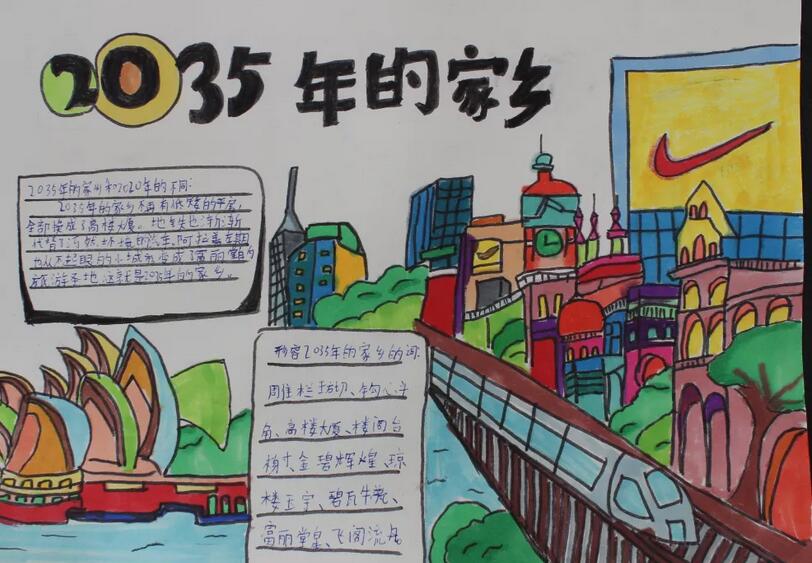 2035年的家乡
2035年的家乡和2020年的不同:
2035年的家乡不再有低矮的平房,
全部换成了高楼大厦。地铁也渐渐
代替了污然环境的汽车,阿拉善左旗
也从不起眼的小城市变成了富丽堂的
旅游圣地,这就是2035年的家乡。
形容2035年的家乡的词:
周住栏坊切、钩心斗
角、高楼大厦、楼阁台
榭、金碧辉煌、琼
楼玉宇、碧瓦牛
富丽堂皇、飞阁流